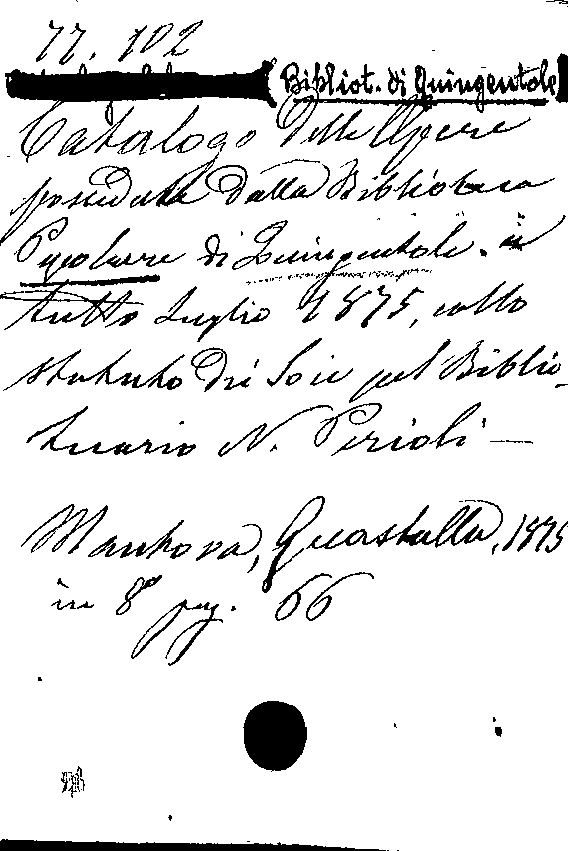 77. 102
(Bibliot. di Quingentole)
Catalogo delle Opere
possedute dalla Biblioteca
Popolare di Quingentole. a
tutto Luglio 1875, collo
statuto dei Soci pel Biblio-
tecario N. Perioli —
Mantova, Guastalla, 1875
in 8° pag. 66